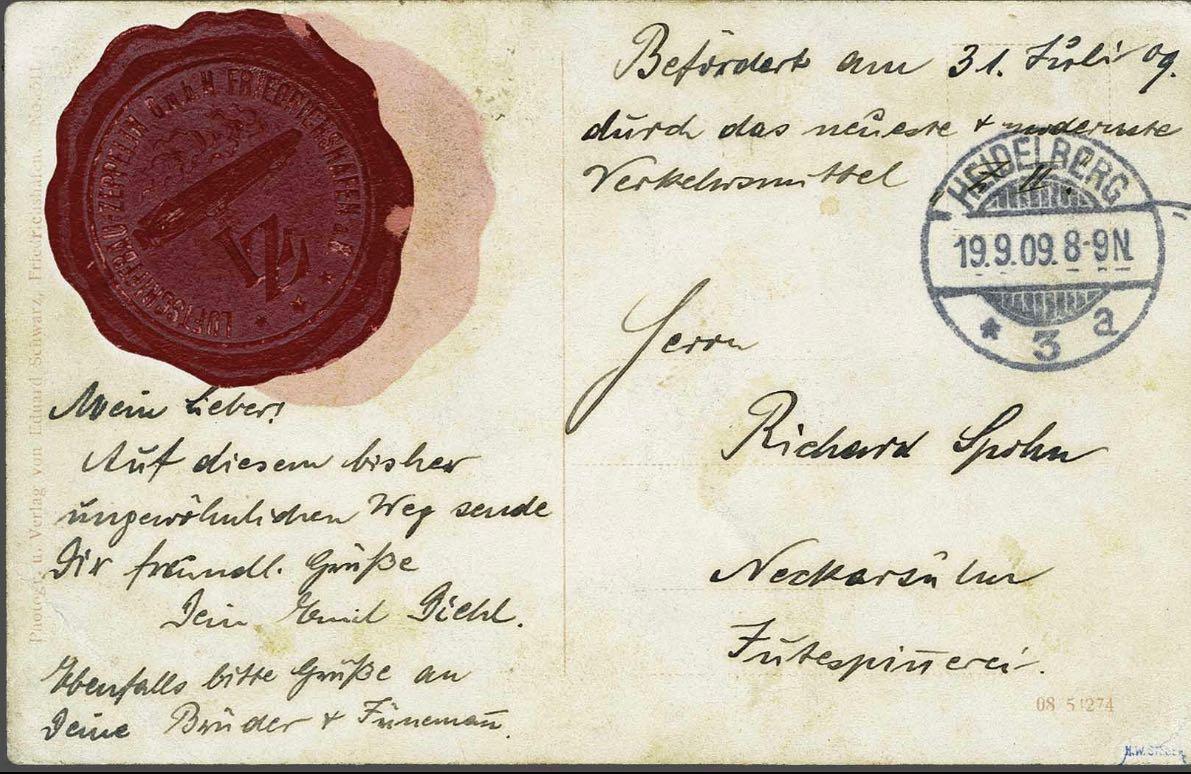 LUFTSCHIFFBAU ZEPPELIN GmbH FRIEDRICHSHAFEN a/B
LZ
Befördert am 31. Juli 09.
durch das neueste + modernste
Verkehrsmittel Z II.
HEIDELBERG
19.9.09. 8-9N.
* 3 a
Herrn
Richard Spohn
Neckarsulm
Jutespinnerei.
Mein Lieber!
Auf diesem bisher
ungewöhnlichen Weg sende
Dir freundl. Grüße
Dein Emil Diehl.
Ebenfalls bitte Grüße an
Deine Brüder + Fünemann.
Photogr. u. Verlag von Eduard Schwarz, Friedrichshafen. No.
08 51274
H.W. SIEGER